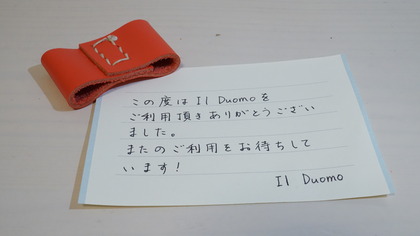 この度は Il Duomoを
ご利用頂きありがとうござい
ました。
またのご利用をお待ちして
います!
Il Duomo